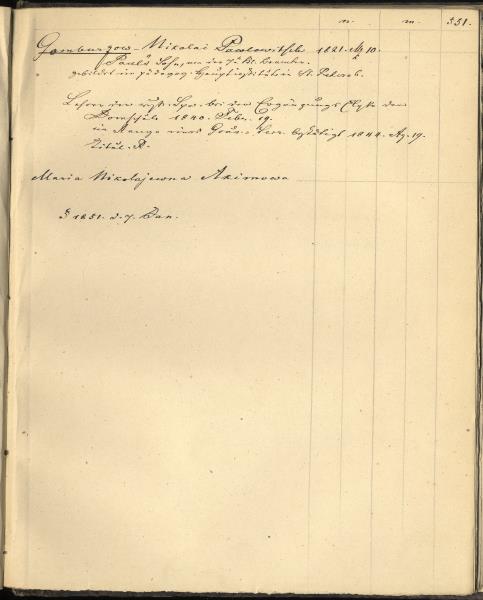 n. m. 351.
Gamburgow Nikolai Pawlowitsch 1821. 10.
Pauls Sohn, von der 7. Kl. Beamter.
gebildet im pädagog. Hauptinstitut in St. Petersb.
Lehrer der russ. Spr. bei den Ergänzungs Cl. der
Domschule 1840. Febr. 19.
im Range eines bestätigt 1844. Ag. 19.
Titul. R.
Maria Nikolajewna Akimowa
1851. d. 7. Jan.